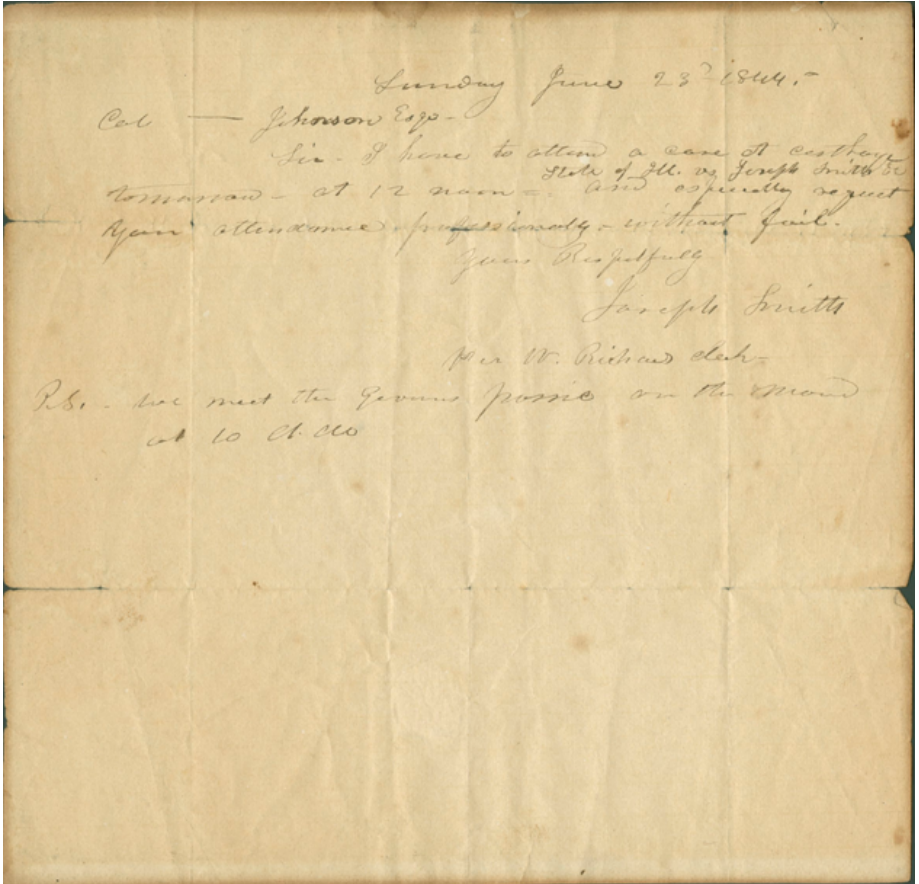 Sunday June 23d 1844.-
Col — Johnson Esqr-
Sir- I have to attend a case at carthage
State of Ill. vs Joseph Smith &c
tomorrow- at 12 noon= and especially request
your attendance professionally- without fail.
Yours Respctfully
Joseph Smith
Per W. Richards clerk-
P.S.- we meet the Govrnrs possie on the mound
at 10